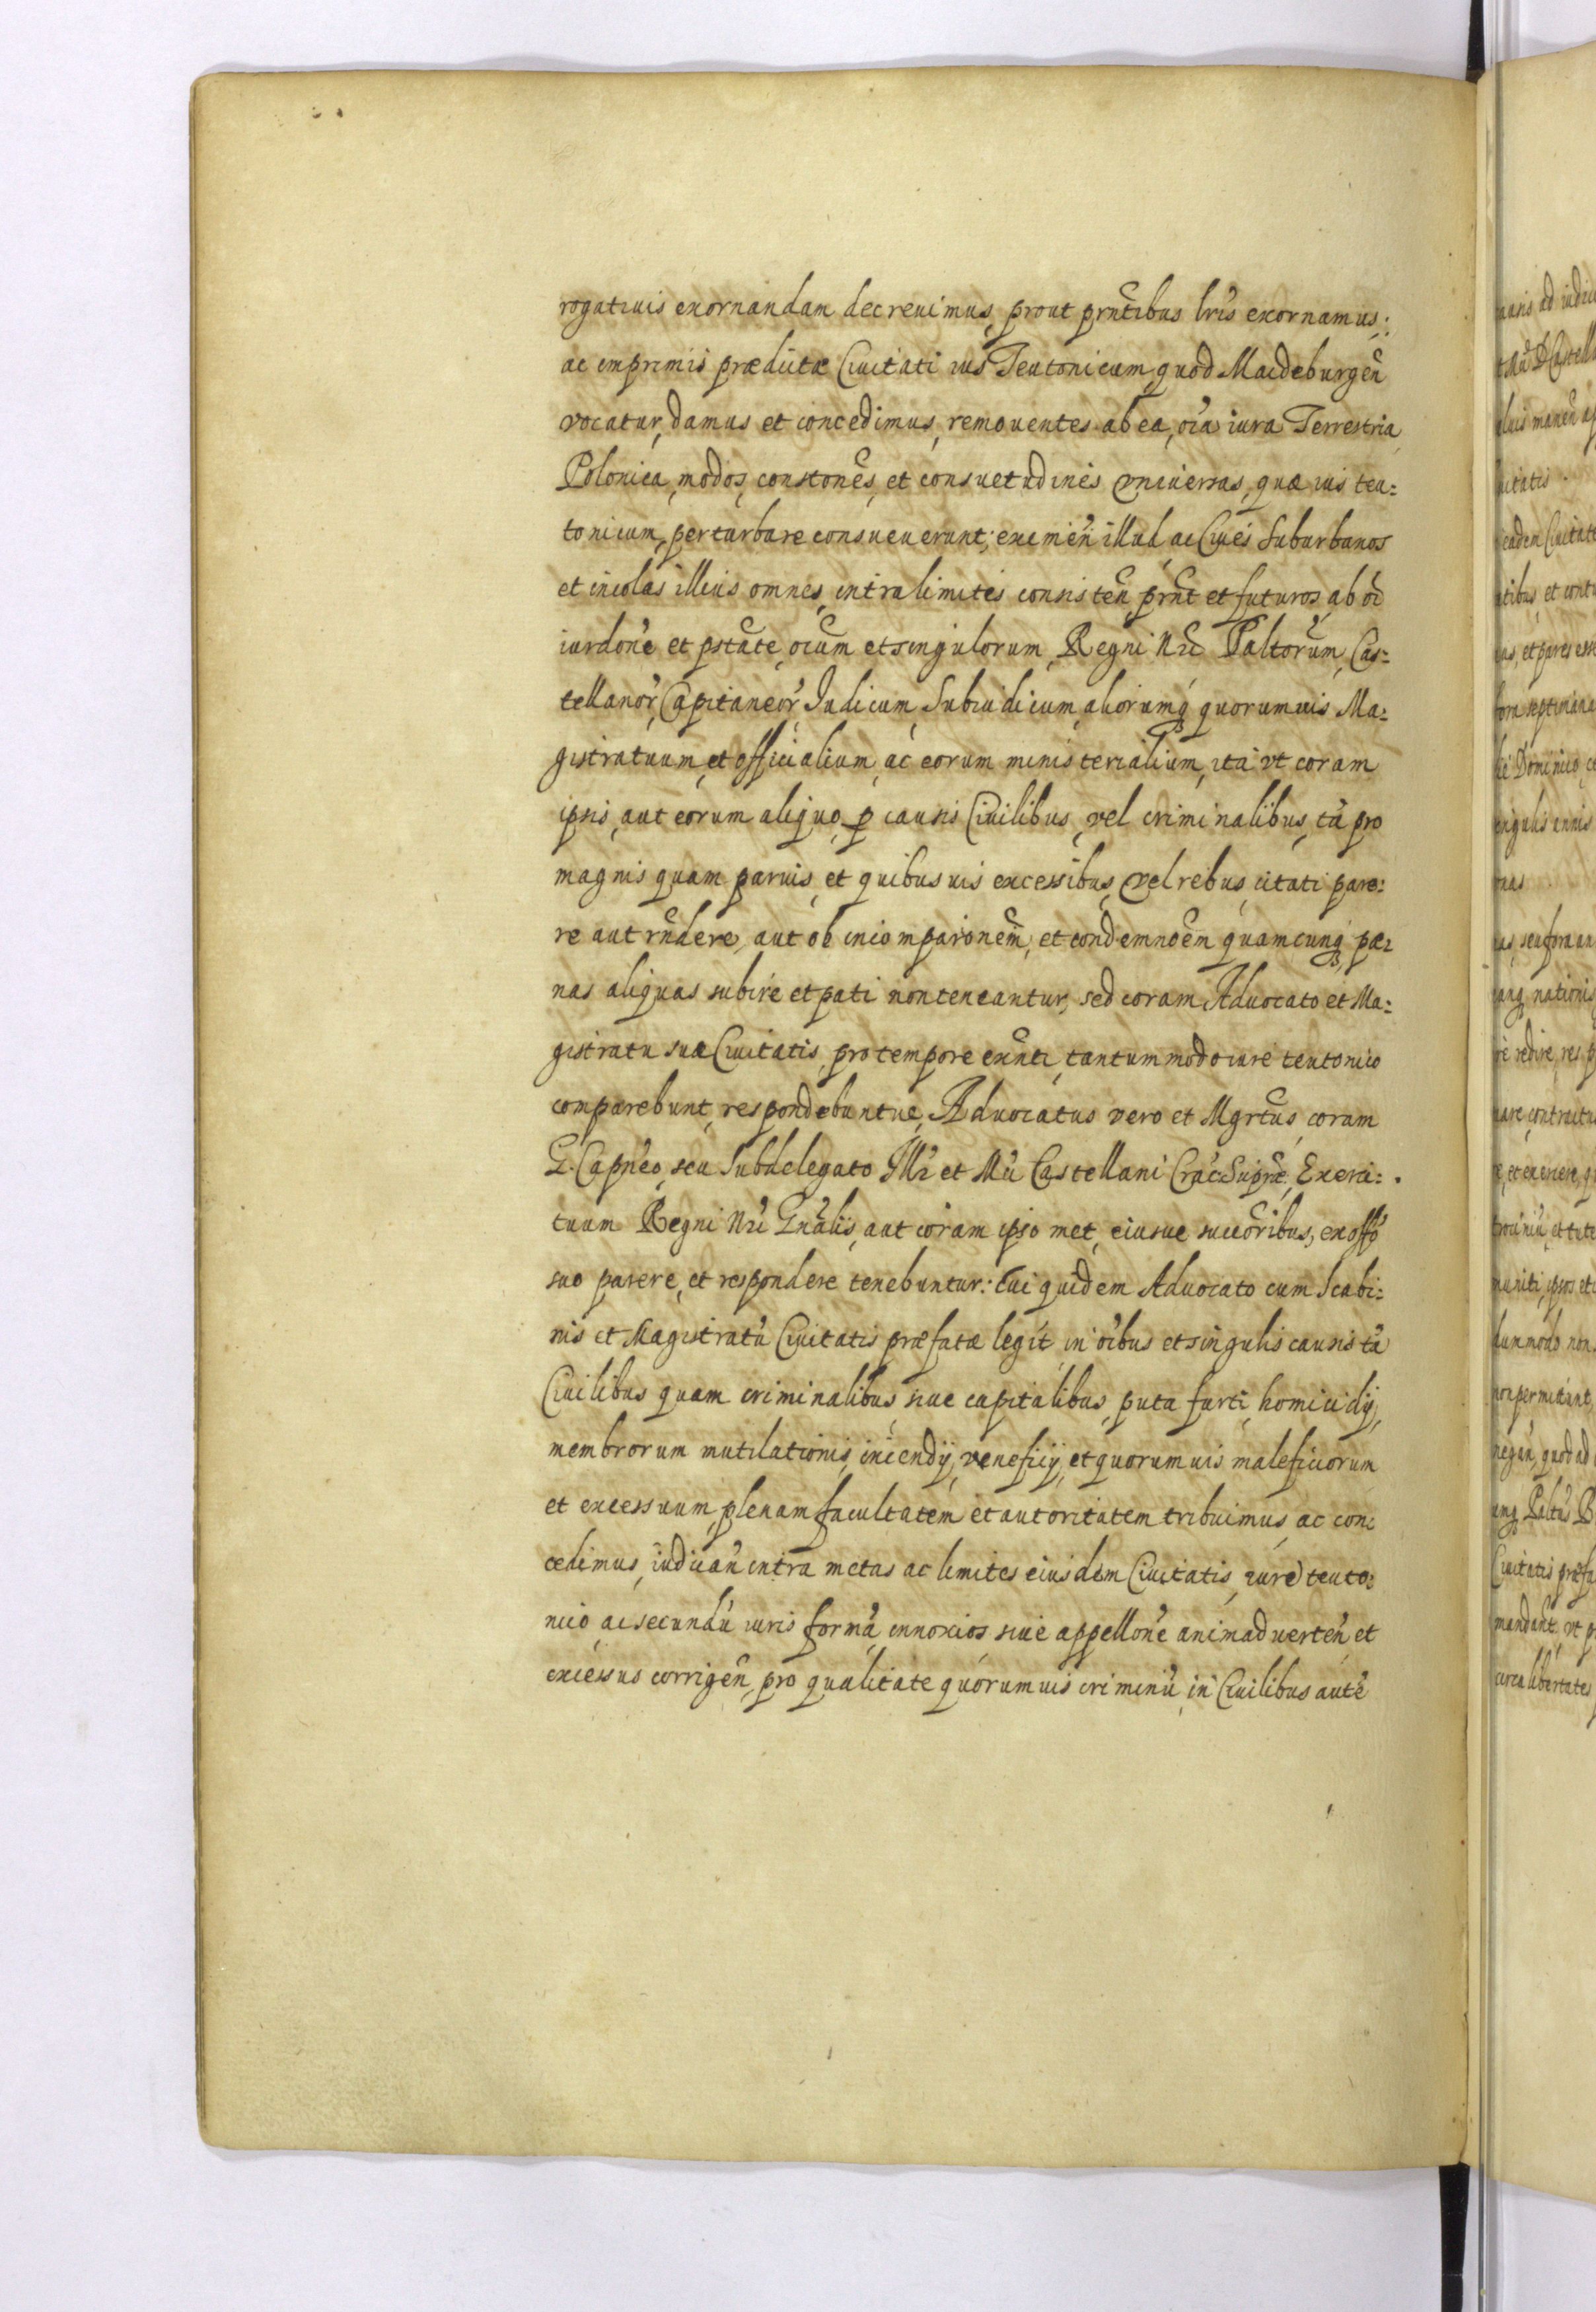 rogatiuis exornandam decreuimus, prout prntibus lris exornamus:
ac imprimis prædictæ Ciuitati ius Teutonicum, quod Maideburgen̄
vocatur, damus et concedimus, remouentes ab ea, oīa iura Terrestria
Polonica, modos, constones, et consuetudines vniuersas, quæ ius teu:
tonicum, perturbare consueuerunt; eximen̄ illud, ac Ciues Suburbanos
et incolas illius omnes, intra limites consisten̄, prnt et futuros, ab oī
iurdone et pstate, oīum et singulorum, Regni Nrī Paltorum, Cas:
tellanor̄, Capitaneor̄, Iudicum, Subiudicum, aliorumq̨ quorumuis Ma:
gistratuum, et officialium, ac eorum ministerialium, ita vt coram
ipsis, aut eorum aliquo, p causis Ciuilibus, vel criminalibus, tā pro
magnis quam paruis, et quibusuis excessibus, vel rebus, citati pare:
re aut rndere, aut ob incomparonem, et condemnoēm quamcunq̨, pæ:
nas aliquas subire et pati non teneantur, sed coram Aduocato et Ma:
gistratu suæ Ciuitatis, pro tempore exnti, tantummodo iure teutonico
comparebunt, respondebuntue, Aduocatus vero et Mgrtus, coram
G. Capneo, seu Subdelegato Illr̄ et Mci Castellani Crac: Supræ, Exerci:
tuum Regni Nrī Gnalis, aut coram ipso met, eiusue succoribus, ex offō
suo parere, et respondere tenebuntur: Cui quidem Aduocato cum Scabi:
nis et Magistratu Ciuitatis præfatæ legit, in oībus et singulis causis tā
Ciuilibus quam criminalibus siue capitalibus, puta furti, homicidij,
membrorum mutilationis, incendij, veneficij, et quorumuis maleficiorum
et excessuum, plenam facultatem et autoritatem tribuimus, ac con:
cedimus, iudican̄ intra metas ac limites eiusdem Ciuitatis, iure teuto:
nico, ac secundū iuris formā, innoxios siue appellone animaduerten̄, et
excessus corrigen̄, pro qualitate quorumuis criminū, in Ciuilibus autē